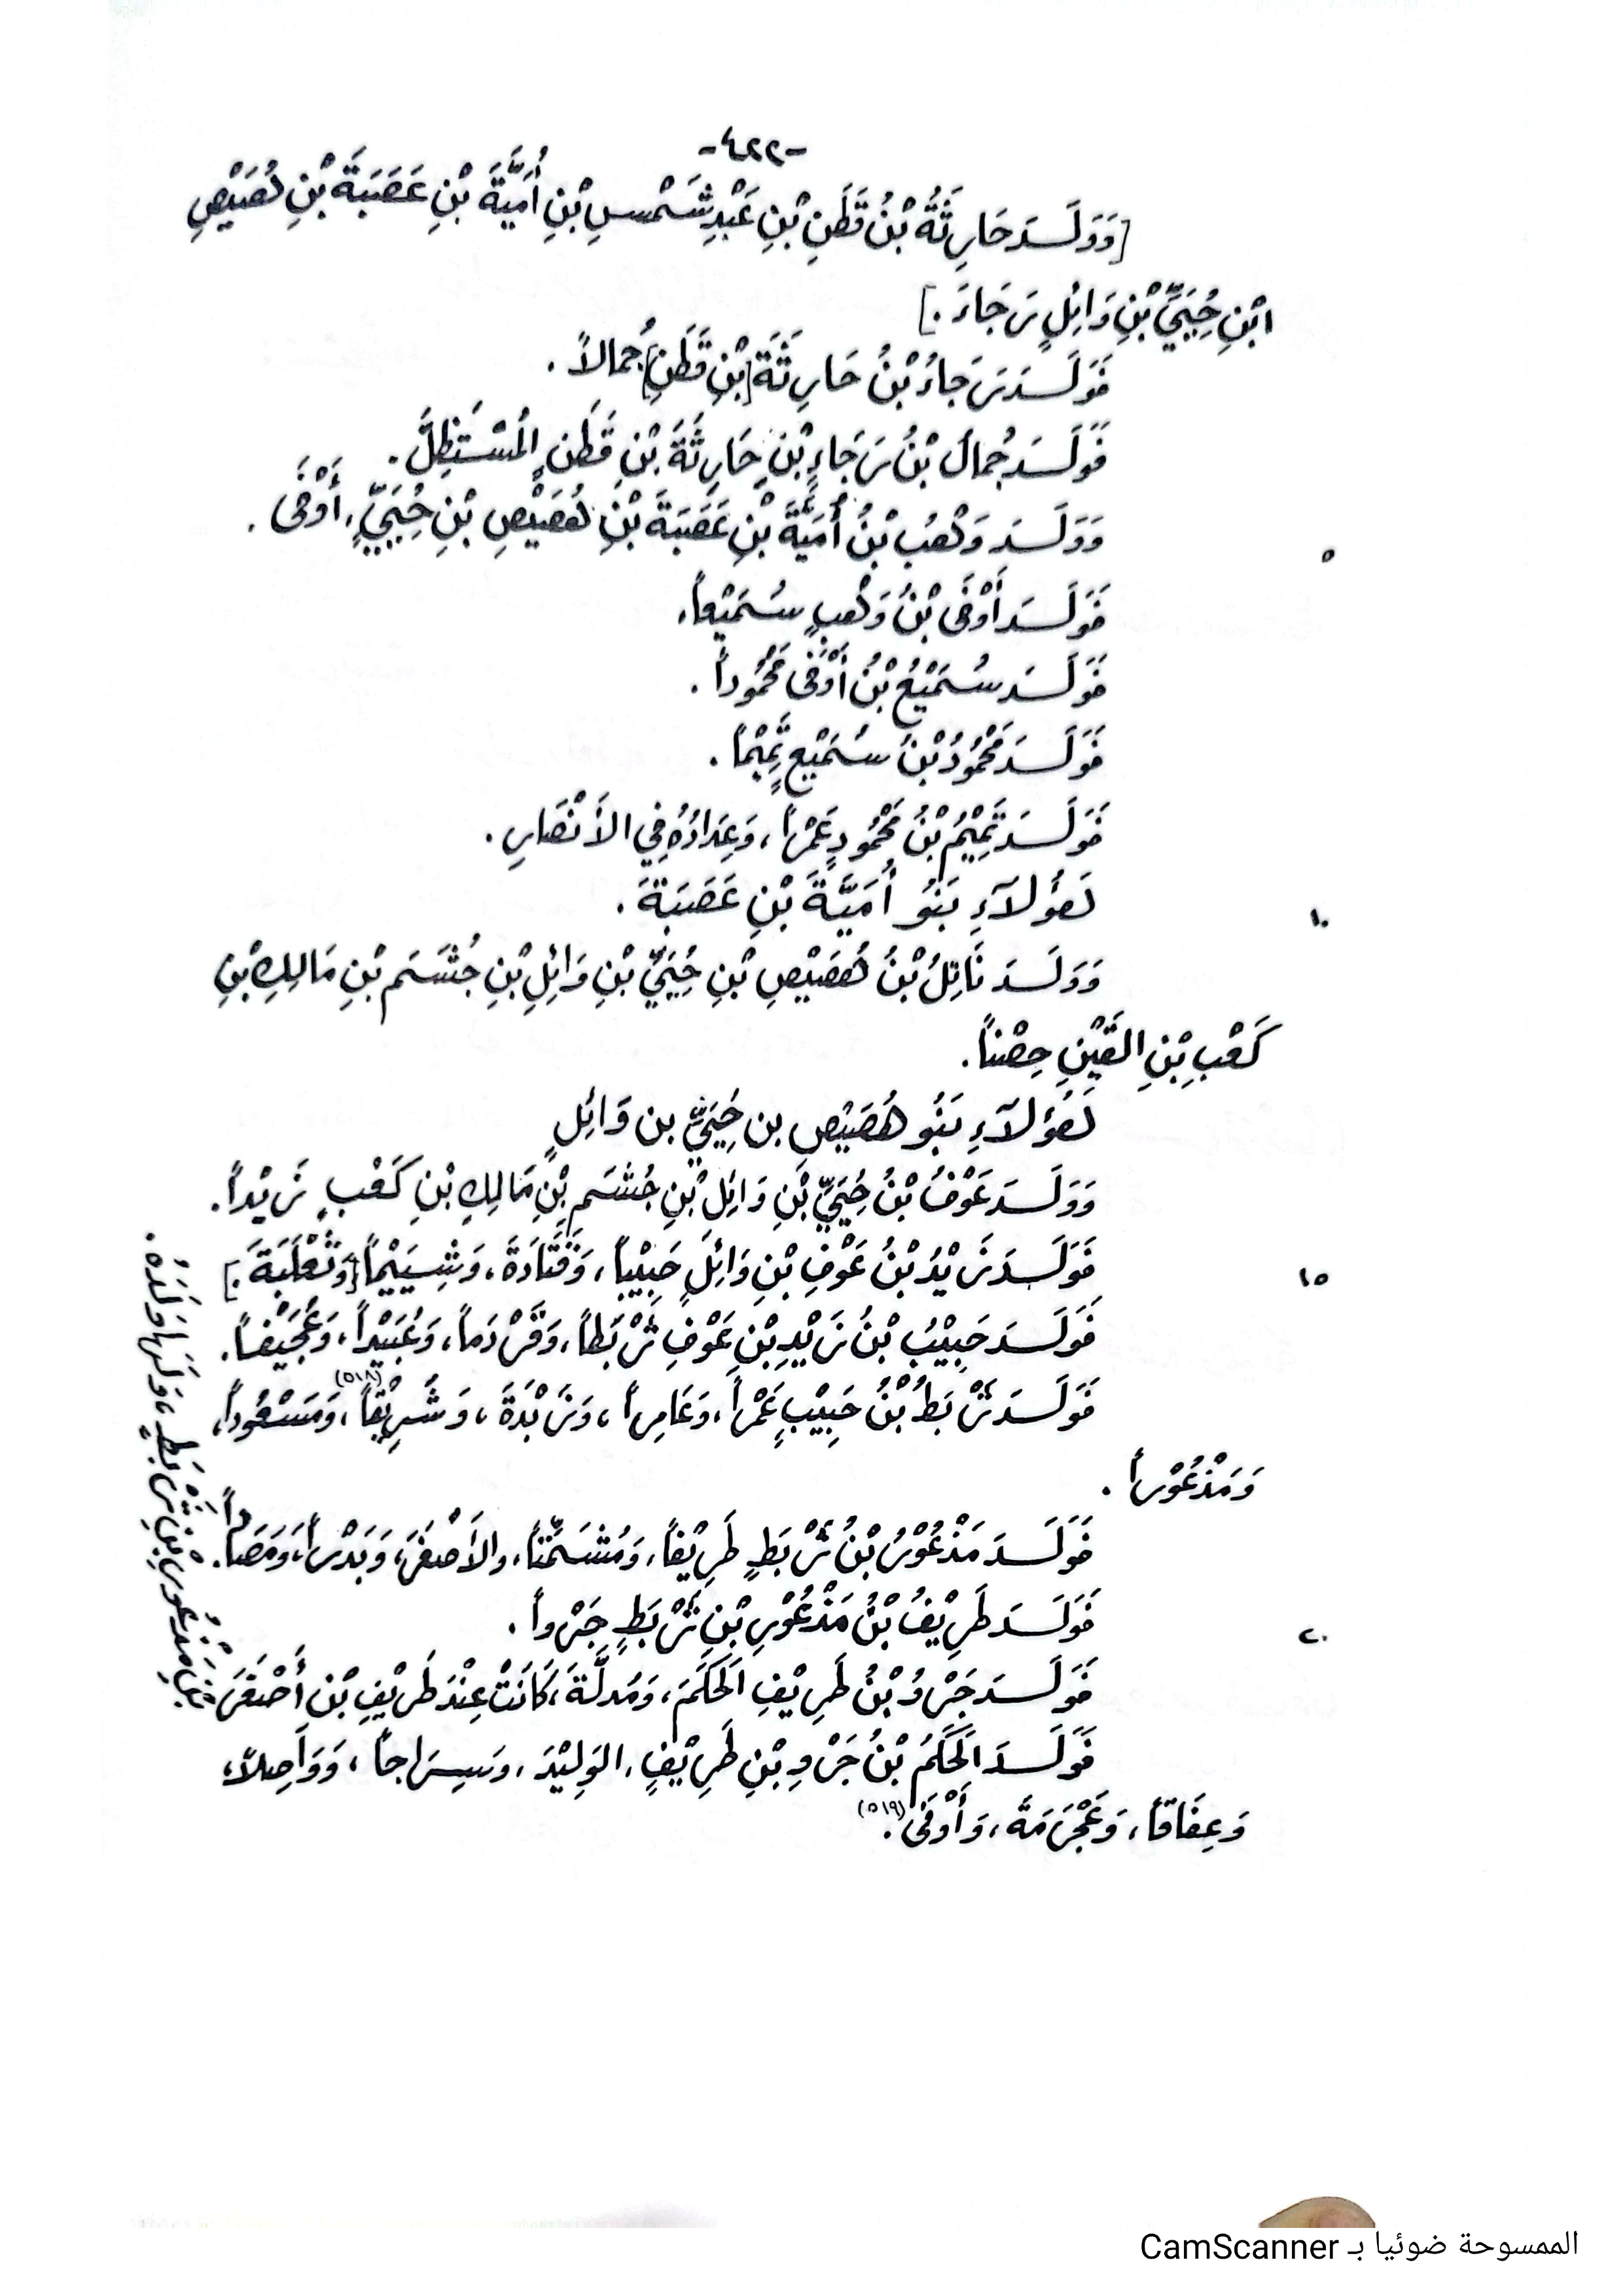 -٤٢٢-
[وَوَلَـدَ حَارِثَةُ بْنُ قَطَنِ بْنِ عَبْدِ شَمْسِ بْنِ أُمَيَّةَ بْنِ عَصَبَةَ بْنِ هُصَيْصِ
ابْنِ حُيَيِّ بْنِ وَائِلٍ رَجَاءَ.]
فَوَلَـدَ رَجَاءُ بْنُ حَارِثَةَ [بْنِ قَطَنٍ] جُمالاً.
فَوَلَـدَ جُمالُ بْنُ رَجَاءِ بْنِ حَارِثَةَ بْنِ قَطَنٍ المُسْتَظِلَّ.
وَوَلَـدَ وَهْبُ بْنُ أُمَيَّةَ بْنِ عَصَبَةَ بْنِ هُصَيْصِ بْنِ حُيَيٍّ، أَوْفَى.
٥
فَوَلَـدَ أَوْفَى بْنُ وَهْبٍ سُمَيْعاً.
فَوَلَـدَ سُمَيْعُ بْنُ أَوْفَى مَحْمُوداً.
فَوَلَـدَ مَحْمُودُ بْنُ سُمَيْعٍ تَمِيْماً.
فَوَلَـدَ تَمِيْمُ بْنُ مَحْمُودٍ عَمْراً، وَعِدَادُهُ فِي الأَنْصَارِ.
هَؤُلَآءِ بَنُو أُمَيَّةَ بْنِ عَصَبَةَ.
١٠
وَوَلَـدَ نَاتِلُ بْنُ هُصَيْصِ بْنِ حُيَيِّ بْنِ وَائِلِ بْنِ جُشَمَ بْنِ مَالِكِ بْنِ
كَعْبِ بْنِ القَيْنِ حِصْناً.
هَؤُلَآءِ بَنُو هُصَيْصِ بن حُيَيِّ بن وَائِلٍ
وَوَلَـدَ عَوْفُ بْنُ حُيَيِّ بْنِ وَائِلِ بْنِ جُشَمِ بْنِ مَالِكِ بْنِ كَعْبٍ زَيْداً.
فَوَلَـدَ زَيْدُ بْنُ عَوْفِ بْنِ وَائِلٍ حَبِيْباً، وَقَتَادَةَ، وَشِيَيْماً [وَثَعْلَبَةَ.]
١٥
فَوَلَـدَ حَبِيْبُ بْنُ زَيْدِ بْنِ عَوْفٍ ثَرْبَطاً، وَقَرْدَماً، وَعُبَيْداً، وَعُجَيْفاً.
فَوَلَـدَ ثَرْبَطُ بْنُ حَبِيْبٍ عَمْراً، وَعَامِراً، وَزَبْدَةَ، وَشَرِيْقاً(٥١٨)، وَمَسْعُوداً،
وَمَذْعُوْراً.
فَوَلَـدَ مَذْعُوْرُ بْنُ ثَرْبَطٍ طَرِيْفاً، وَمُشَمِّتاً، والأَصْفَرَ، وَبَدْراً، وَمَصَاداً.
فَوَلَـدَ طَرِيْفُ بْنُ مَذْعُوْرِ بْنِ ثَرْبَطٍ جَرْواً.
٢٠
فَوَلَـدَ جَرْوُ بْنُ طَرِيْفٍ الحَكَمَ، وَمُدِلَّةَ، كَانَتْ عِنْدَ طَرِيْفِ بْنِ أَصْفَرَ
بْنِ مَذْعُوْرِ بْنِ ثَرْبَطٍ، وَلَهَا وَلَدَهُ.
فَوَلَـدَ الحَكَمُ بْنُ جَرْوِ بْنِ طَرِيْفٍ، الوَلِيْدَ، وَسِرَاجاً، وَوَاصِلاً،
وَعِفَاقاً، وَعَجْرَمَةَ، وَأَوْفَى(٥١٩).
الممسوحة ضوئيا بـ CamScanner